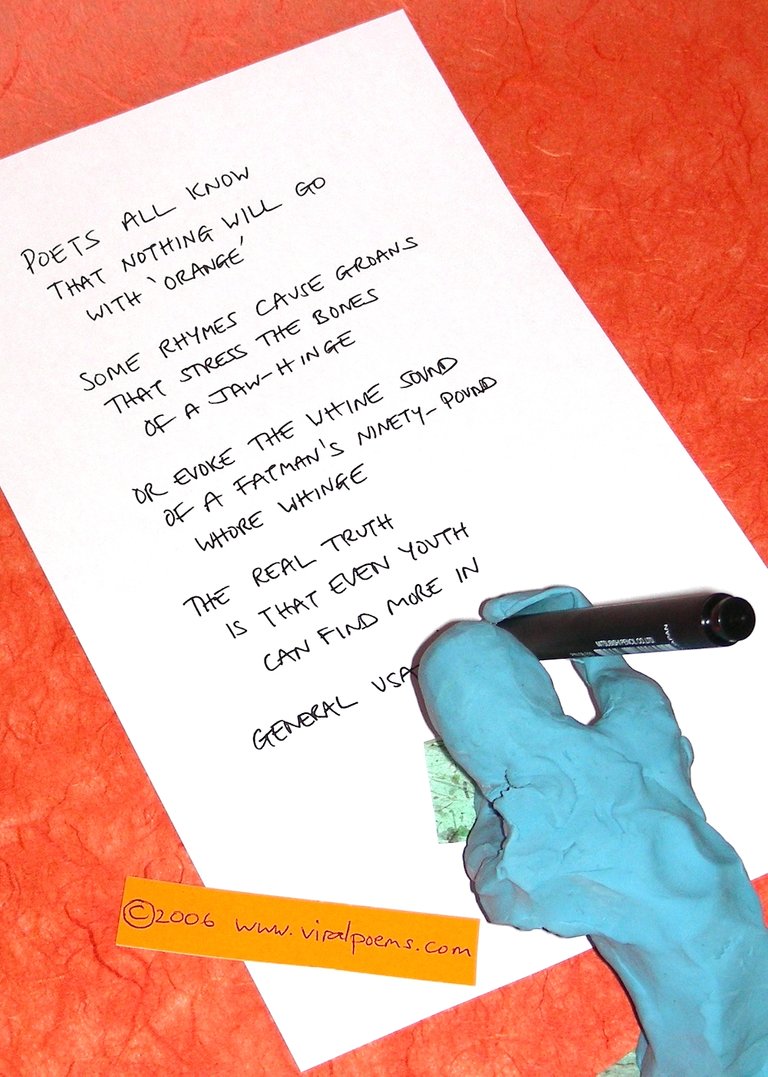 POETS ALL KNOW
THAT NOTHING WILL GO
WITH 'ORANGE'
SOME RHYMES CAUSE GROANS
THAT STRESS THE BONES
OF A JAW-HINGE
OR EVOKE THE WHINE SOUND
OF A FATMAN'S NINETY-POUND
WHORE WHINGE
THE REAL TRUTH
IS THAT EVEN YOUTH
CAN FIND MORE IN
GENERAL USA
MITSUBISHI PENCIL CO. LTD
©2006 www.viralpoems.com